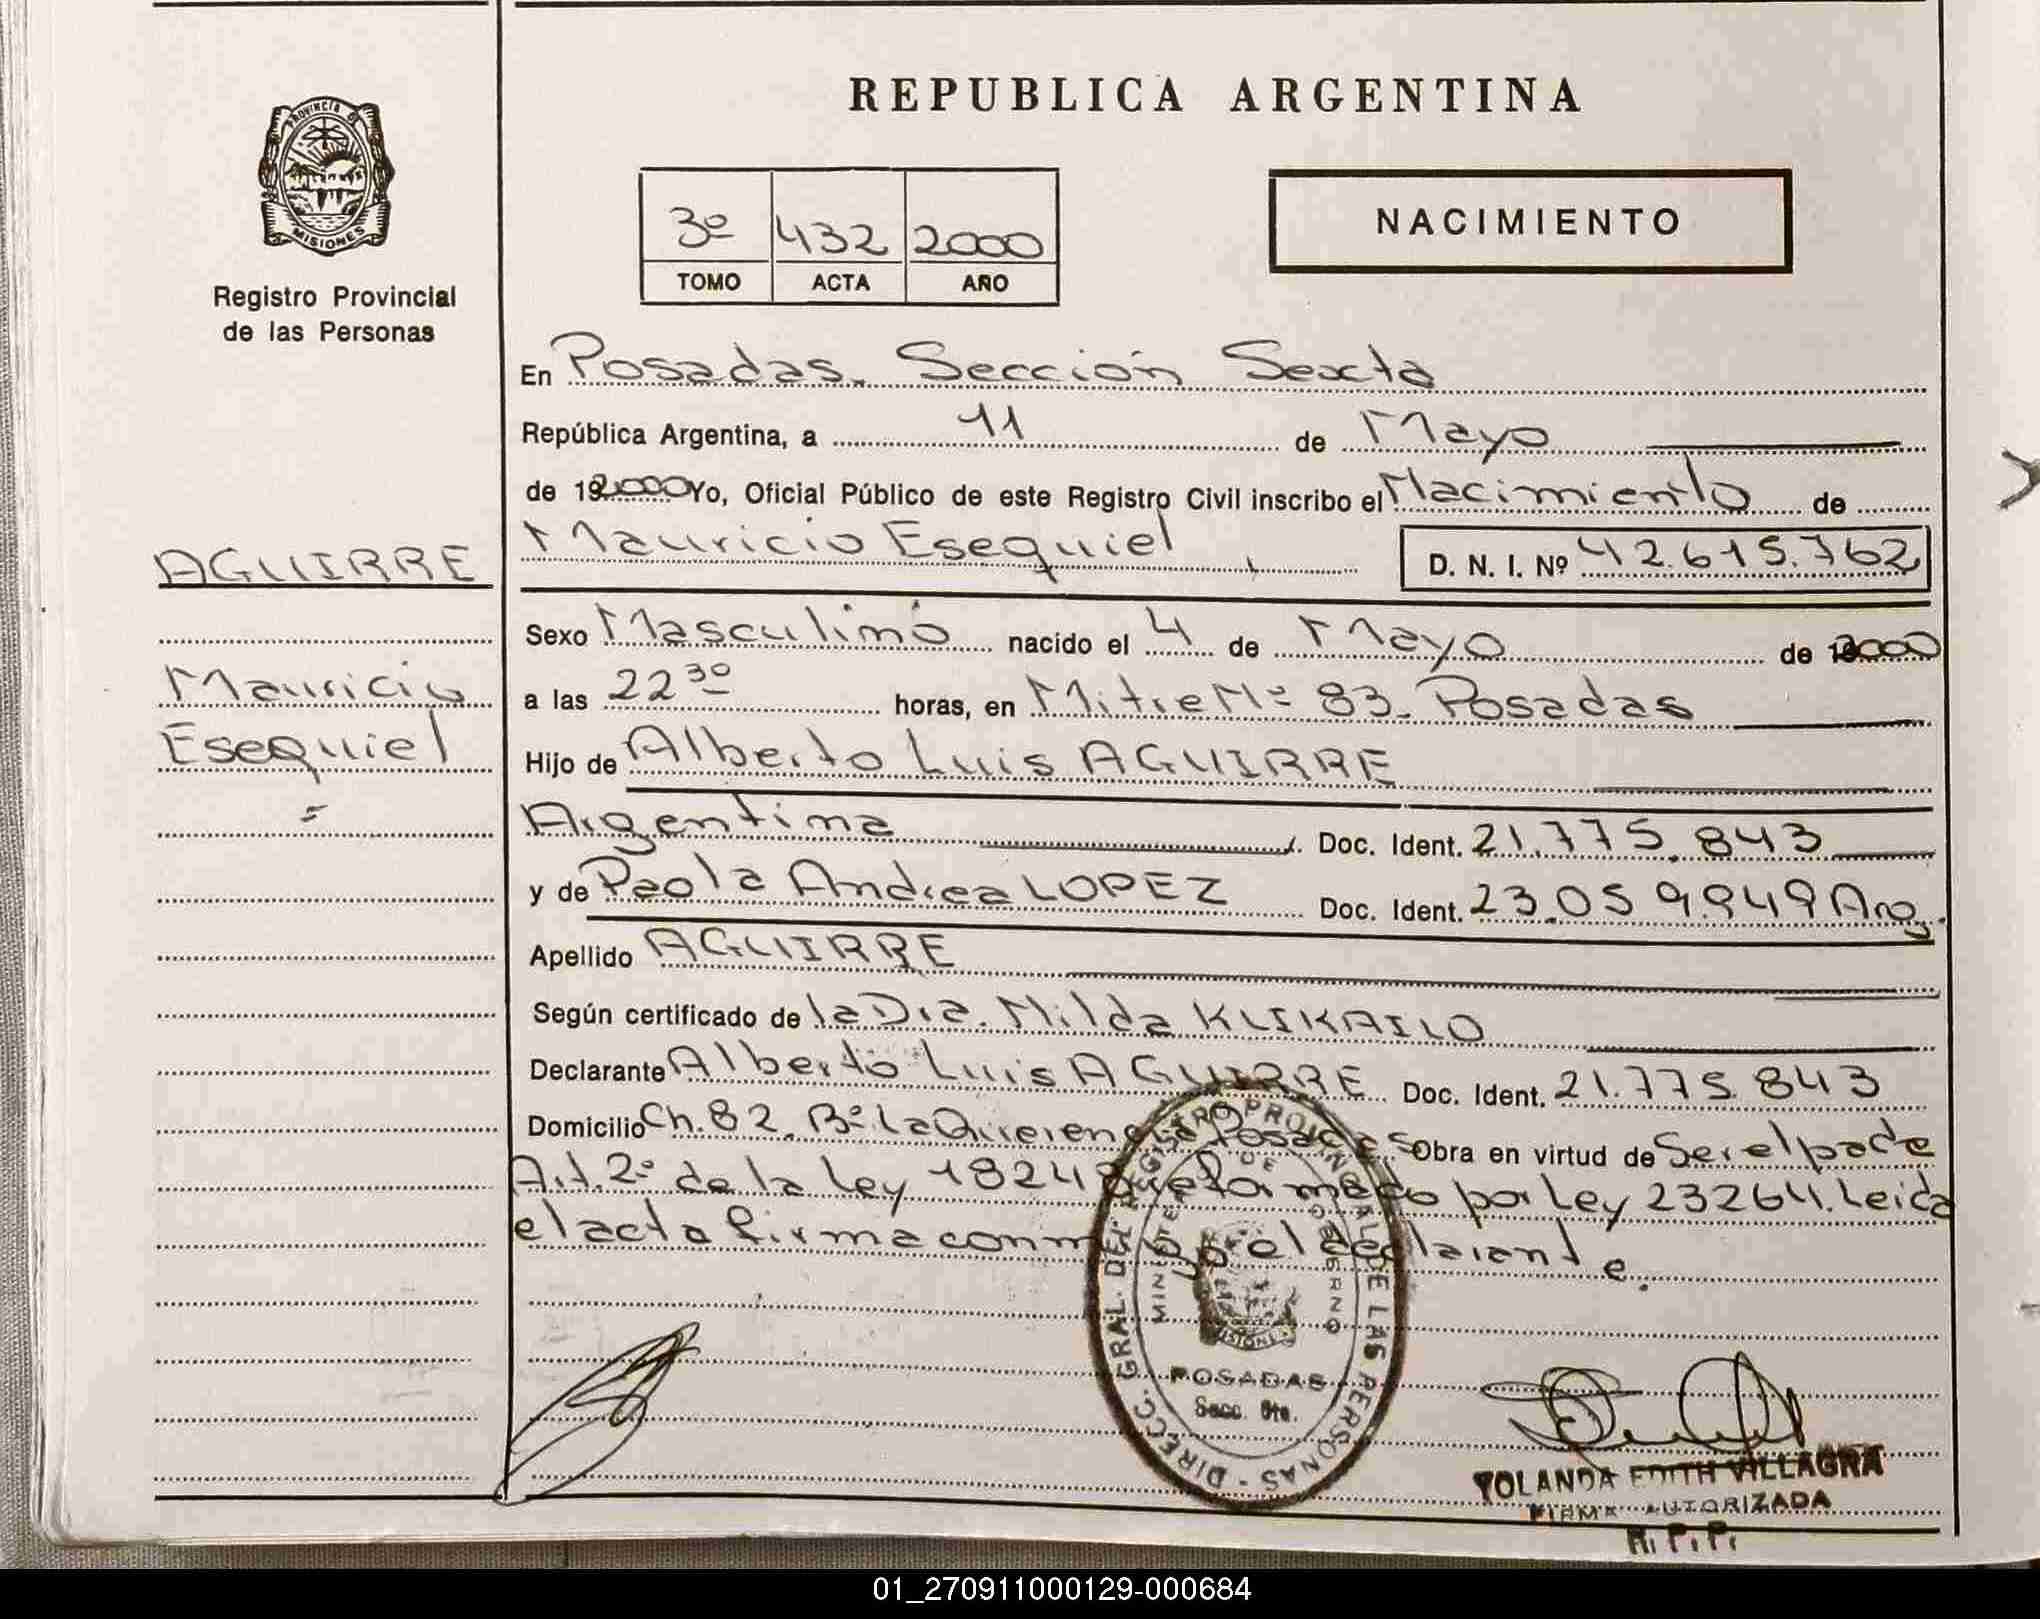 REPUBLICA ARGENTINA
PROVINCIA DE
MISIONES
Registro Provincial
de las Personas
3º 432 2000
TOMO ACTA AÑO
NACIMIENTO
En Posadas. Sección Sexta
República Argentina, a 11 de Mayo
de 192000 Yo, Oficial Público de este Registro Civil inscribo el Nacimiento de
AGUIRRE
Mauricio Esequiel D. N. I. Nº 42.615.762
Sexo Masculino nacido el 4 de Mayo de 2000
Mauricio
a las 22 30 horas, en Mitre Nº 83. Posadas
Esequiel
Hijo de Alberto Luis AGUIRRE
=
Argentina Doc. Ident. 21.775.843
y de Paola Andrea LOPEZ Doc. Ident. 23.059.949 Arg.
Apellido AGUIRRE
Según certificado de la Dra. Nilda KLIKAILO
Declarante Alberto Luis AGUIRRE Doc. Ident. 21.775.843
Domicilio Ch. 82. Bº La Querencia Posadas Obra en virtud de Ser el padre
Art. 2º de la Ley 18248 reformado por Ley 23264. Leida
el acta firma conmigo el declarante.
DIRECC. GRAL. DEL REGISTRO PROVINCIAL DE LAS PERSONAS -
MINISTERIO DE GOBIERNO
MISIONES
POSADAS
Secc. 6ta.
YOLANDA EDITH VILLAGRA
FIRMA AUTORIZADA
R. P. P.
01_270911000129-000684